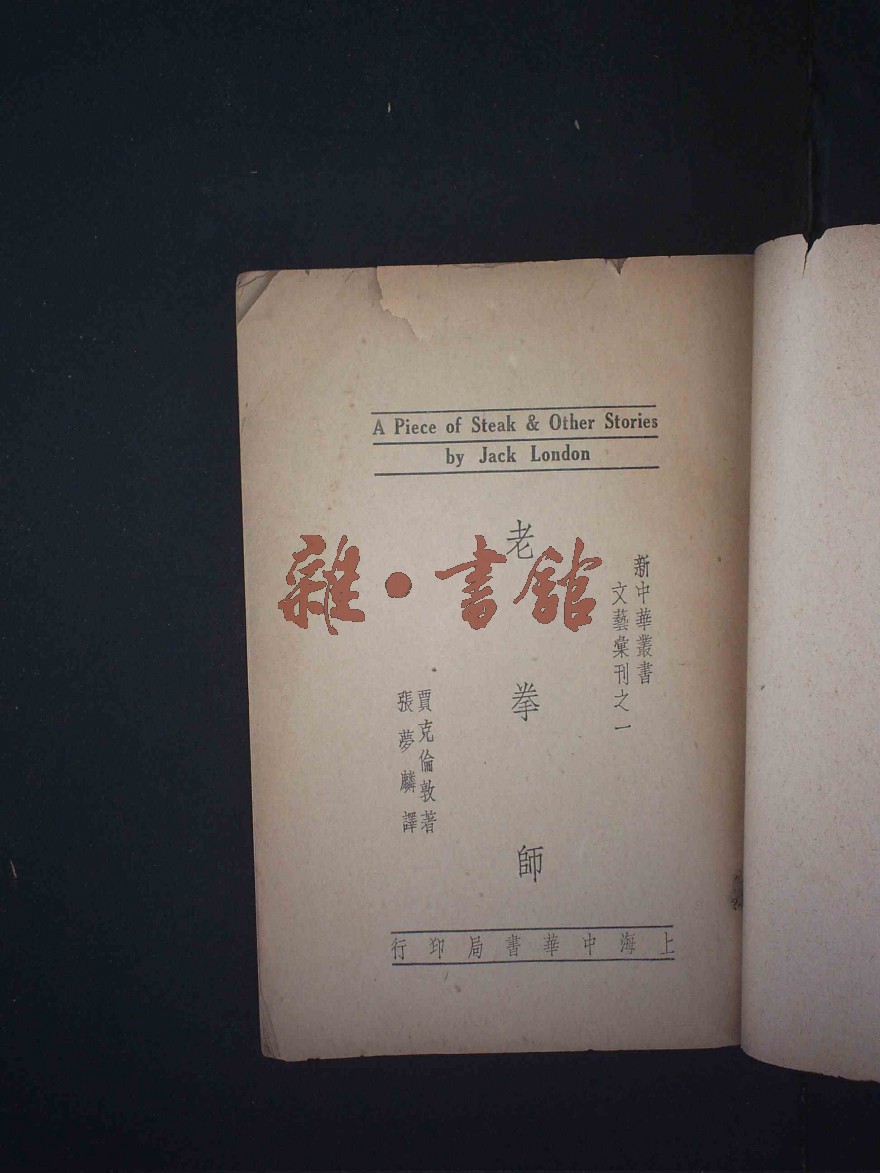 A Piece of Steak & Other Stories
by Jack London
新中華叢書
文藝彙刊之一
老拳師
賈克倫敦著
張夢麟譯
上海中華書局印行
雜·書館